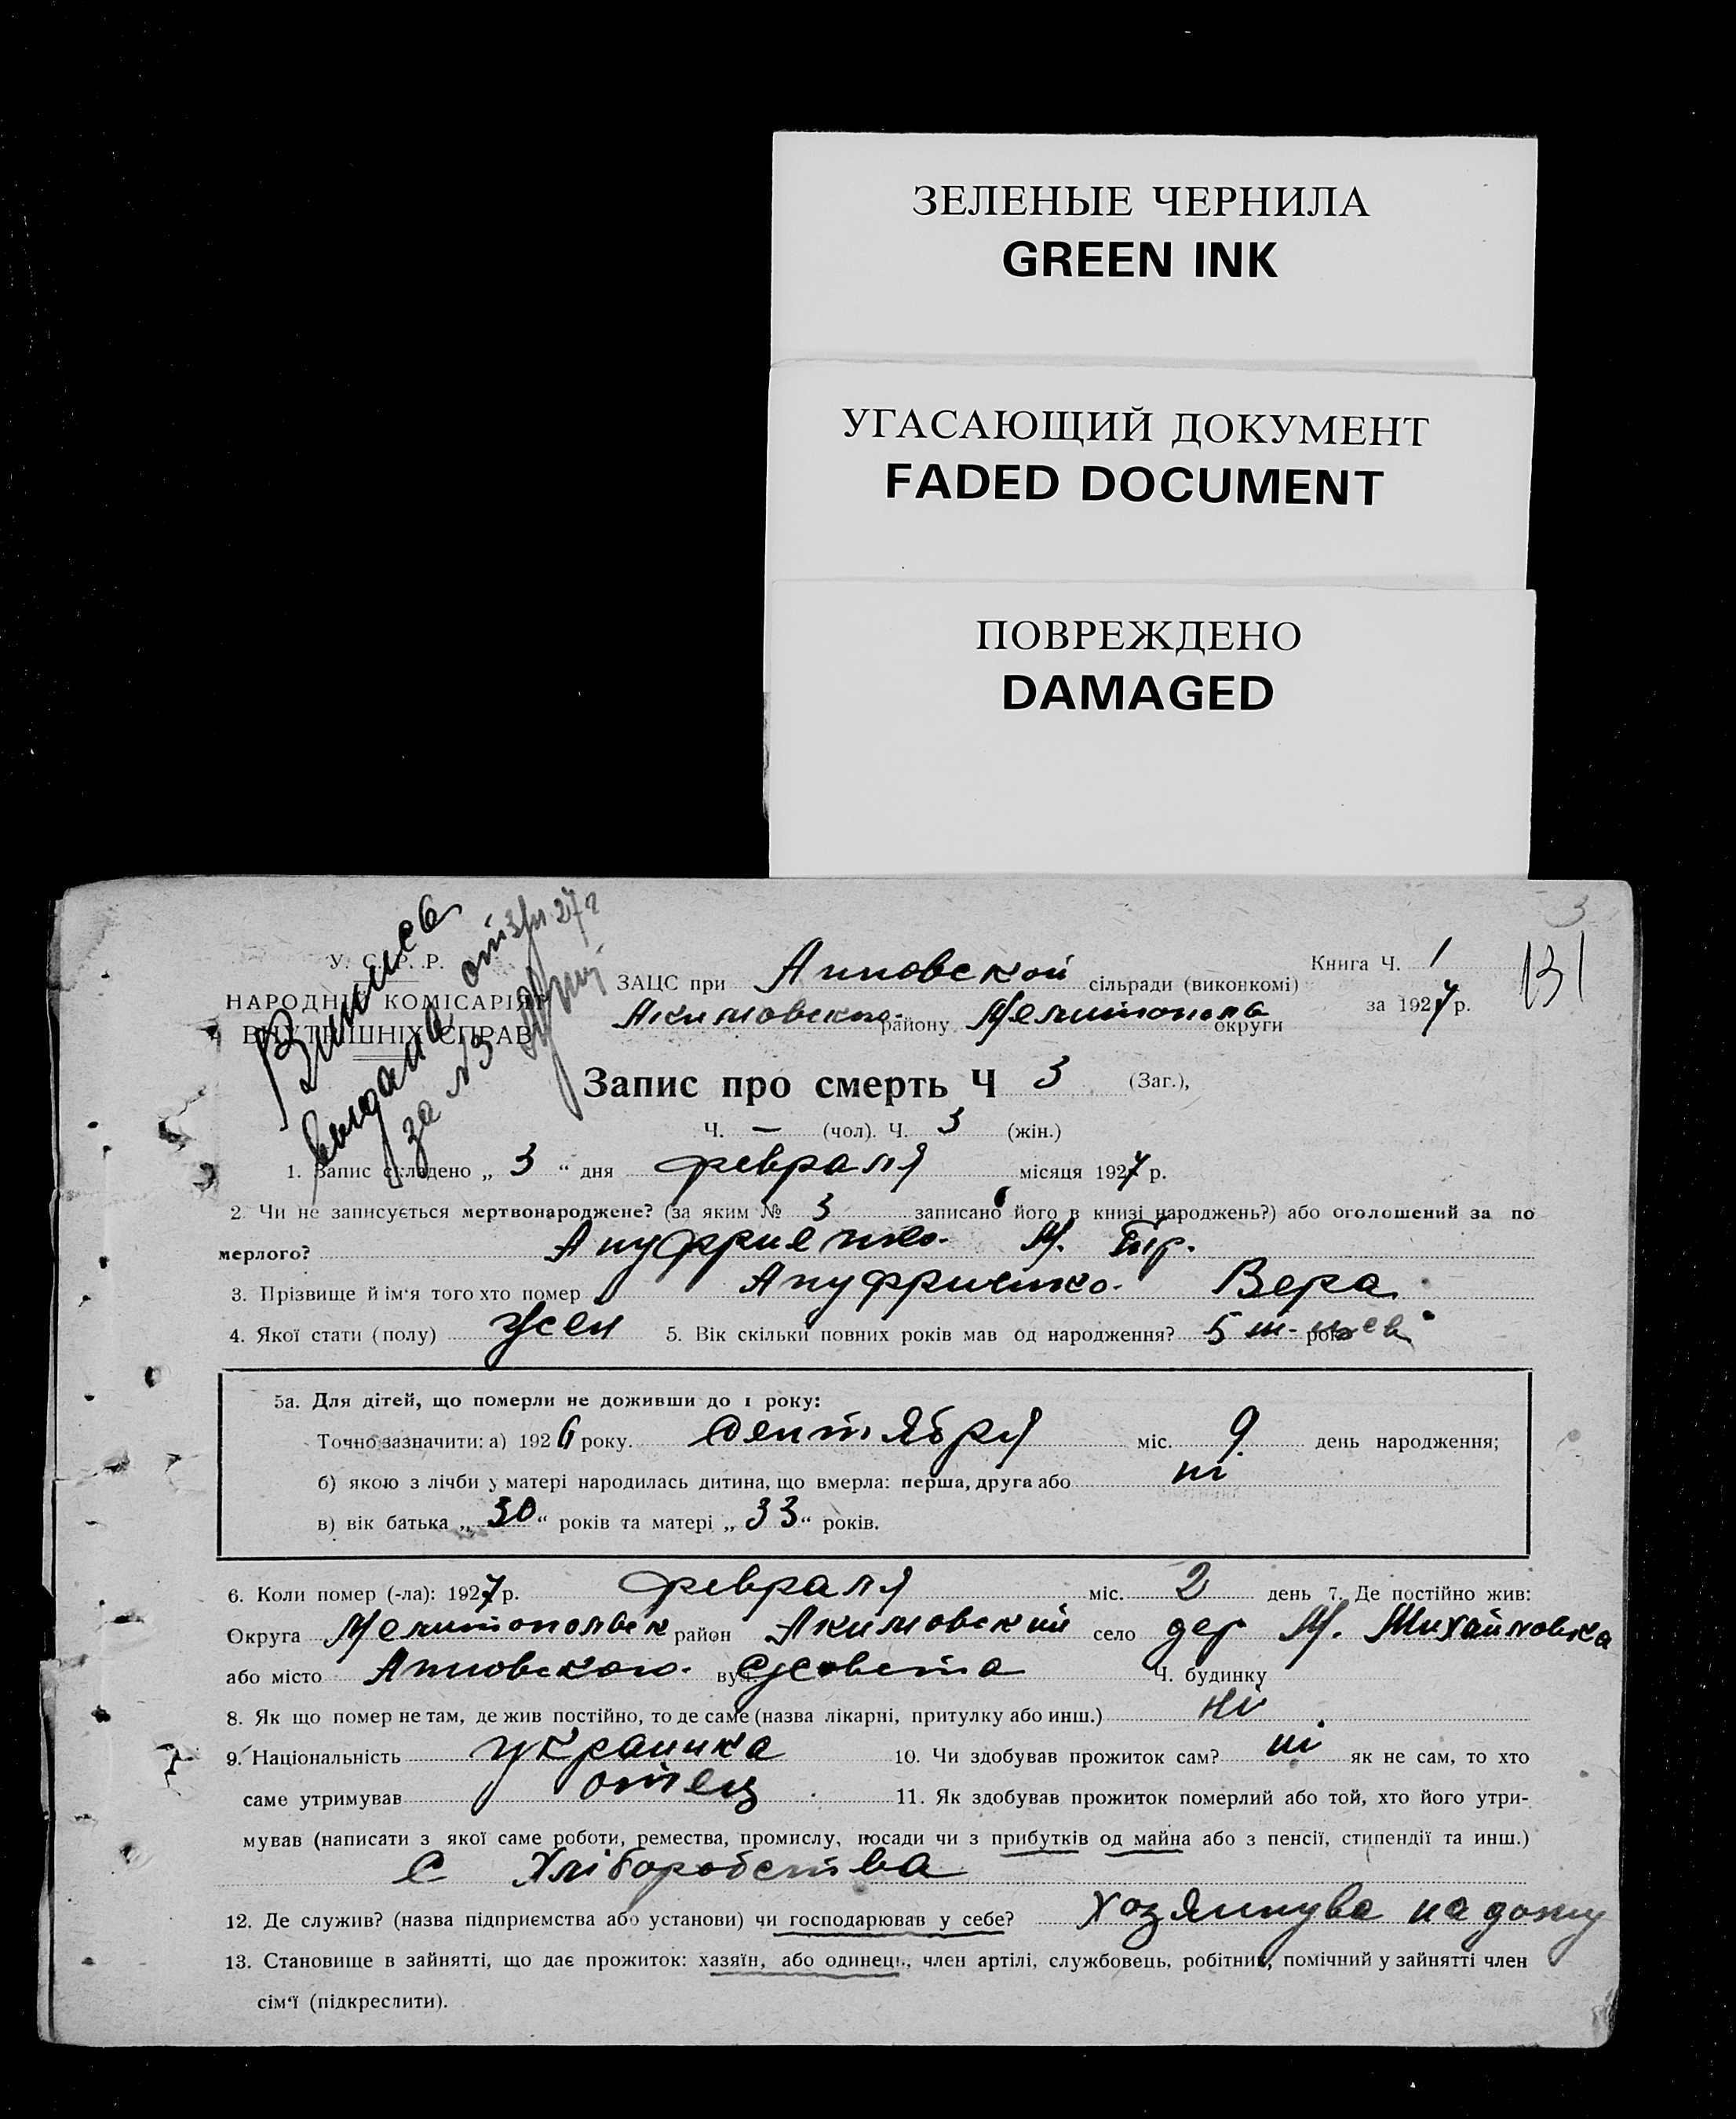 ЗЕЛЕНЫЕ ЧЕРНИЛА
GREEN INK
УГАСАЮЩИЙ ДОКУМЕНТ
FADED DOCUMENT
ПОВРЕЖДЕНО
DAMAGED
3
Выпись
выдана
за № 3
У. С. Р. Р.
НАРОДНІЙ КОМІСАРІЯТ
ВНУТРІШНІХ СПРАВ
Книга Ч. 1
131
ЗАЦС при Анновской сільради (виконкомі)
за 1927 р.
Акимовского району Мелитополь округи
Запис про смерть Ч 3 (Заг.),
Ч. — (чол). Ч. 3 (жін.)
1. Запис складено „ 3 “ дня февраля місяця 1927 р.
2. Чи не записується мертвонароджене? (за яким № 3 записано його в книзі народжень?) або оголошений за по
мерлого? Ануфриенко М. Гр.
3. Прізвище й ім'я того хто помер Ануфриенко Вера
4. Якої стати (полу) жен 5. Вік скільки повних років мав од народження? 5 м-цев років
5а. Для дітей, що померли не доживши до 1 року:
Точно зазначити: а) 1926 року. Сентября міс. 9 день народження;
б) якою з лічби у матері народилась дитина, що вмерла: перша, друга або ні
в) вік батька „ 30 “ років та матері „ 33 “ років.
6. Коли помер (-ла): 1927 р. февраля міс. 2 день 7. Де постійно жив:
Округа Мелитопольск район Акимовский село дер М. Михайловка
або місто Анновского вул. с/совета Ч. будинку
8. Як що помер не там, де жив постійно, то де саме (назва лікарні, притулку або инш.) ні
9. Національність украинка 10. Чи здобував прожиток сам? ні як не сам, то хто
саме утримував отец 11. Як здобував прожиток померлий або той, хто його утри-
мував (написати з якої саме роботи, ремества, промислу, посади чи з прибутків од майна або з пенсії, стипендії та инш.)
с Хліборобства
12. Де служив? (назва підприємства або установи) чи господарював у себе? хозяинува на дому
13. Становище в зайнятті, що дає прожиток: хазяїн, або одинець, член артілі, службовець, робітник, помічний у зайнятті член
сім'ї (підкреслити).